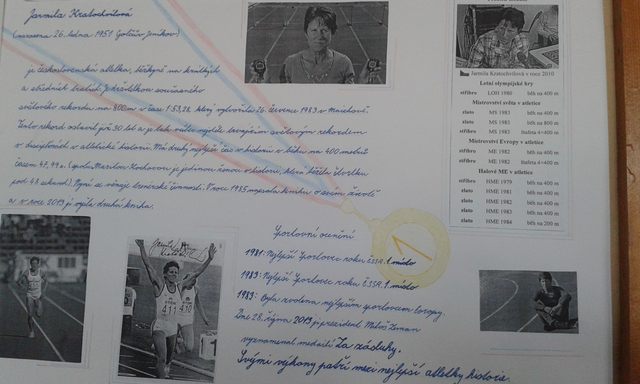 Jarmila Kratochvílová
(narozena 26. ledna 1951 Golčův Jeníkov)
je československá atletka, běžkyně na krátkých
a středních tratích. Je držitelkou současného
světového rekordu na 800m v čase 1:53,28, který vytvořila 26. července 1983 v Mnichově.
Tento rekord odolává již 30 let a je tak
v disciplínách v atletické historii. Má druhý nejlepší čas v historii v běhu na 400 metrů
časem 47,99 s. (spolu Maritou Kochovou je jedinou ženou v historii, která běžela čtvrtku
pod 48 sekund). Nyní se věnuje trenérské činnosti. V roce 1985 napsala knihu o svém životě
a v roce 2013 jí vyšla druhá kniha.
Sportovní ocenění
1981: Nejlepší sportovec roku ČSSR 1. místo
1983: Nejlepší sportovec roku ČSSR 1. místo
1983: Byla zvolena nejlepším sportovcem Evropy
Dne 28. října 2013 jí prezident Miloš Zeman
vyznamenal medailí Za zásluhy.
Svými výkony patří mezi nejlepší atletky historie.
1
411
410
Jarmila Kratochvílová v roce 2010
Letní olympijské hry
stříbro LOH 1980 běh na 400 m
Mistrovství světa v atletice
zlato MS 1983 běh na 400 m
zlato MS 1983 běh na 800 m
stříbro MS 1983 štafeta 4×400 m
Mistrovství Evropy v atletice
stříbro ME 1982 běh na 400 m
stříbro ME 1982 štafeta 4×400 m
Halové ME v atletice
stříbro HME 1979 běh na 400 m
zlato HME 1981 běh na 400 m
zlato HME 1982 běh na 400 m
zlato HME 1983 běh na 400 m
zlato HME 1984 běh na 200 m